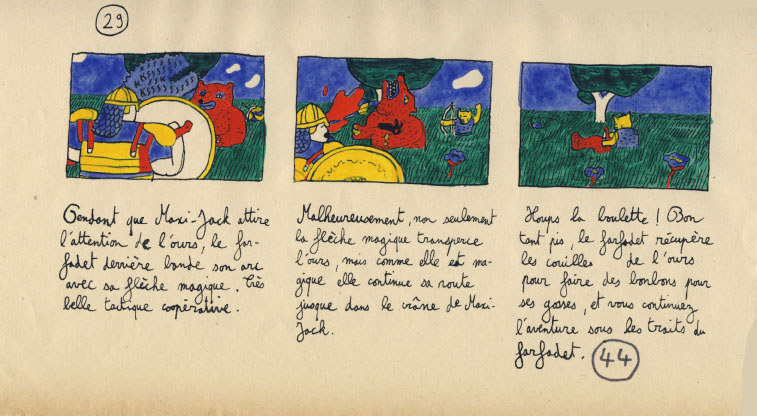 29
KSSSSSSS
KKSSSSSSS
SSK
KSSSSSJSS
Pendant que Maxi-Jack attire
l'attention de l'ours, le far-
fadet derrière bande son arc
avec sa flèche magique. Très
belle tactique coopérative.
Malheureusement, non seulement
la flèche magique transperce
l'ours, mais comme elle est ma-
gique elle continue sa route
jusque dans le crâne de Maxi-
Jack.
Houps la boulette ! Bon
tant pis, le farfadet récupère
les couilles de l'ours
pour faire des bonbons pour
ses gosses, et vous continuez
l'aventure sous les traits du
farfadet. 44